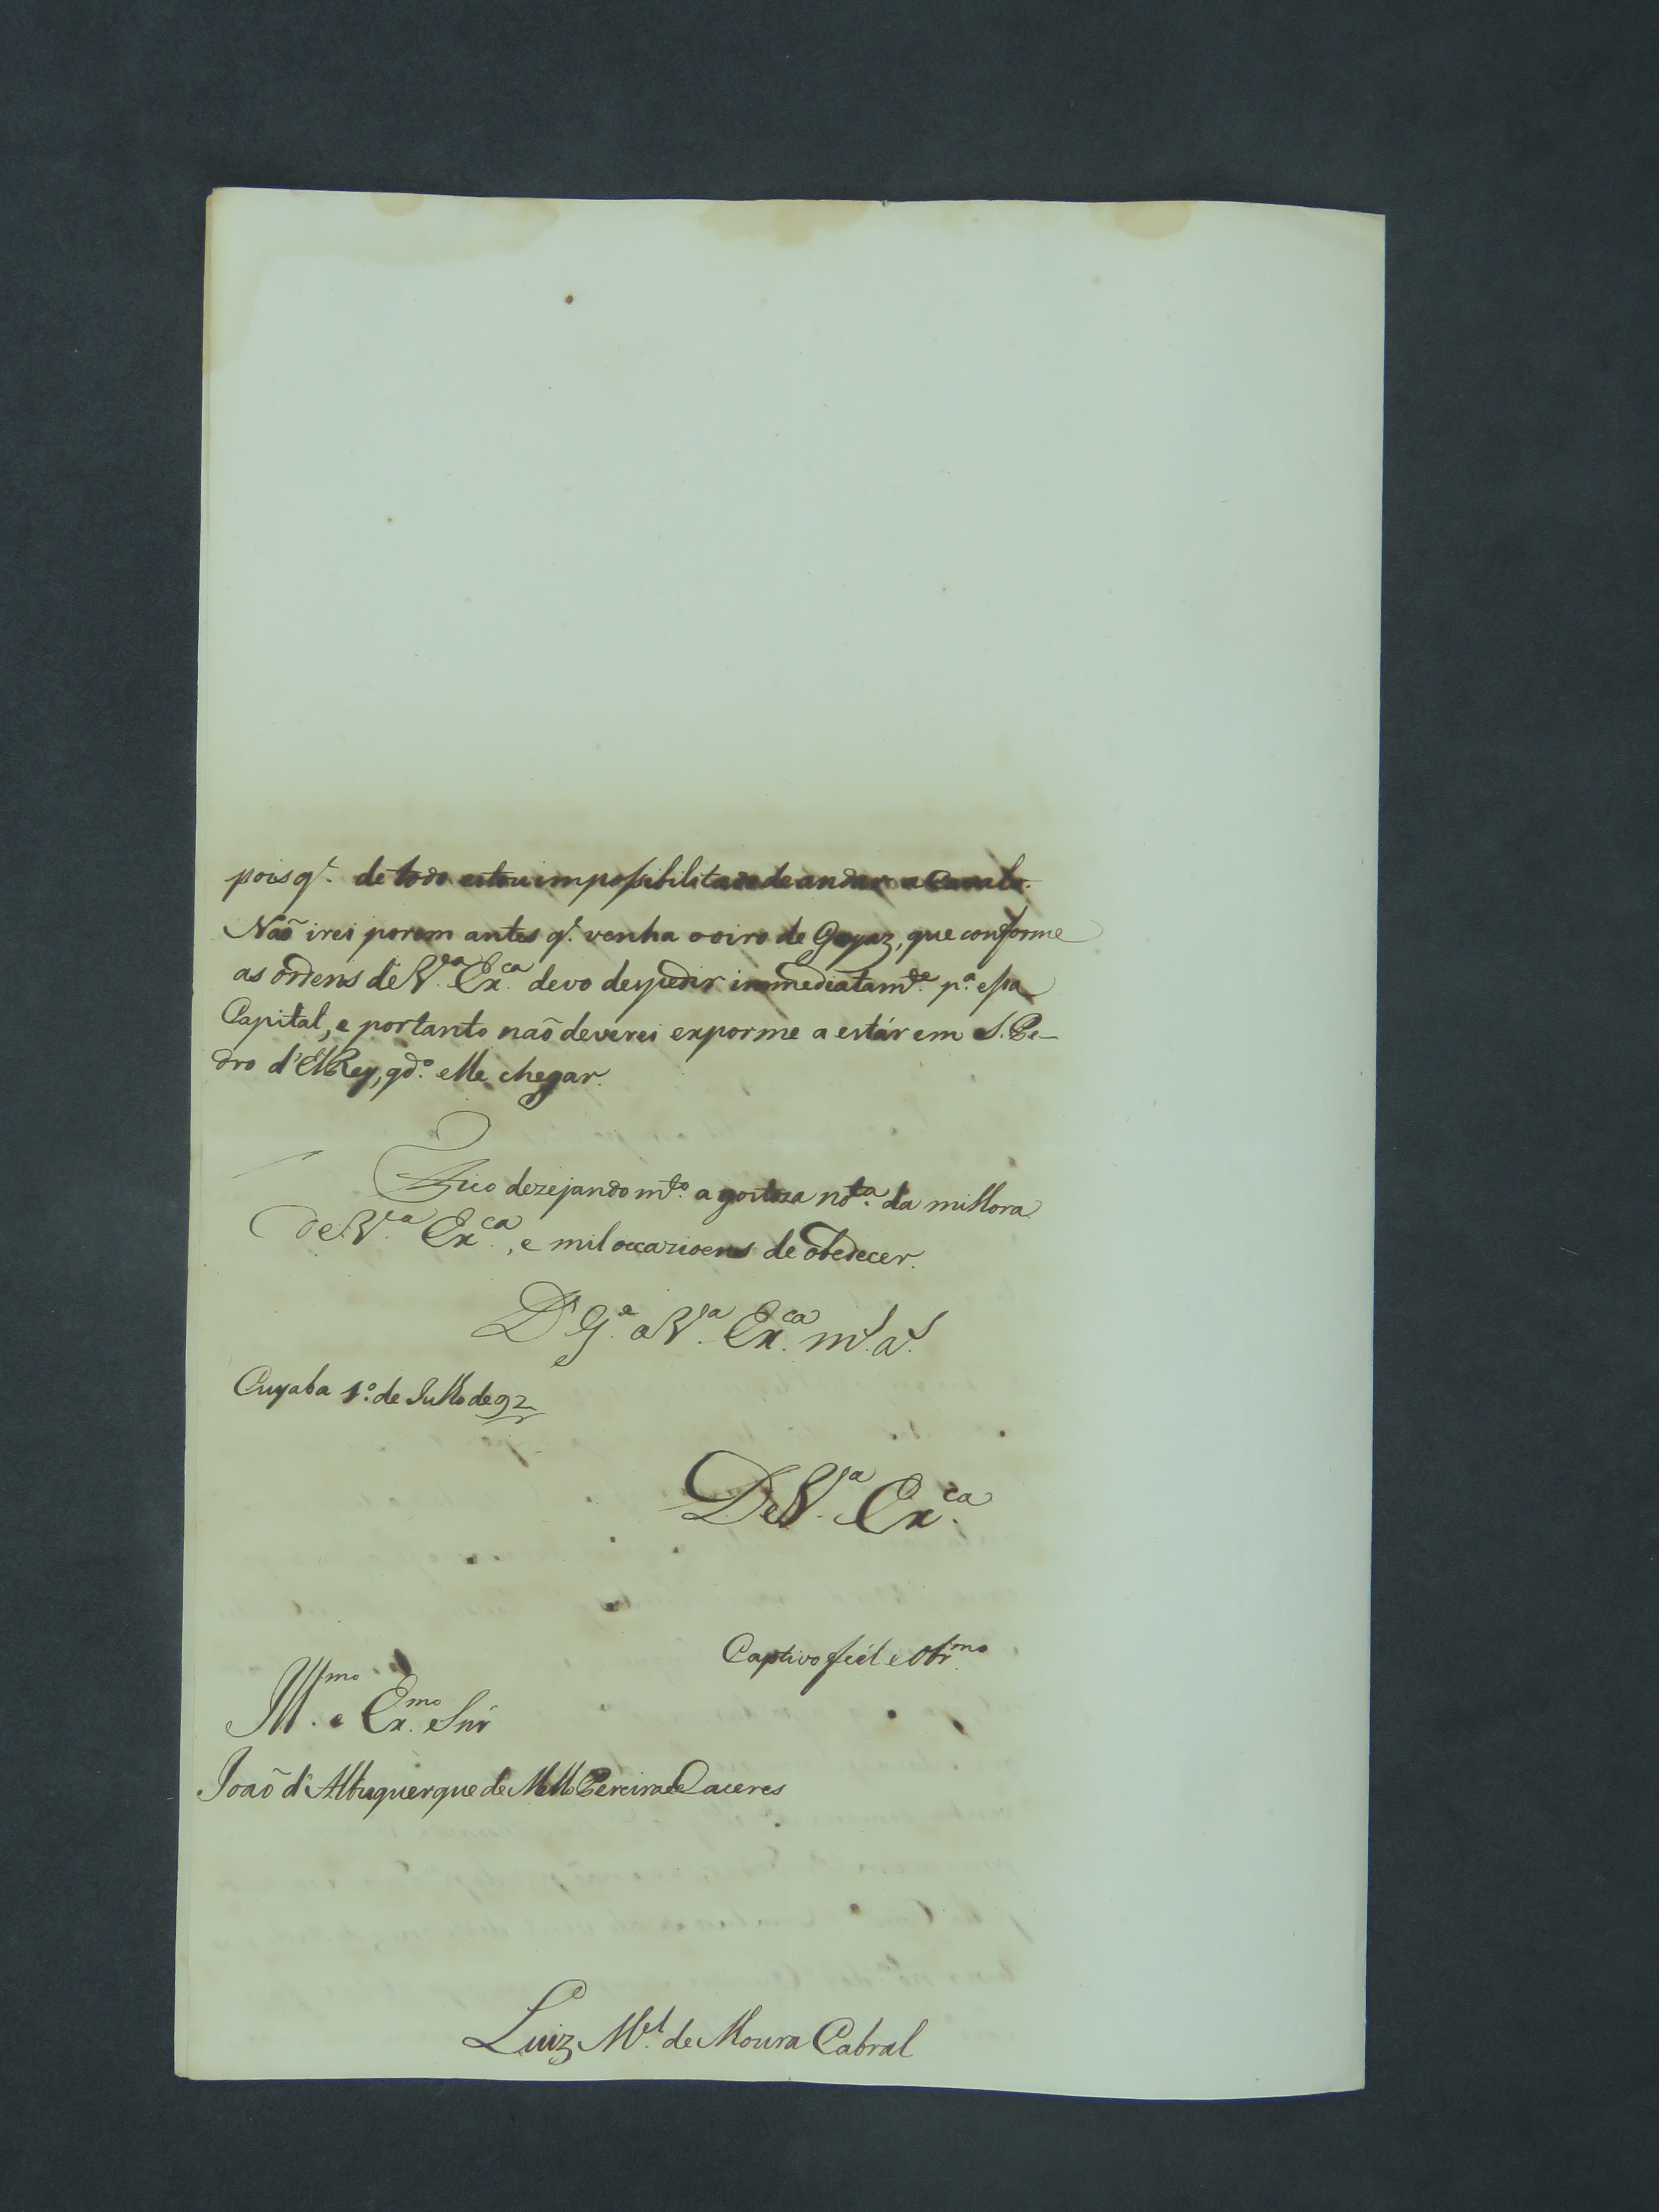 pois q̃. de todo estou impossibilitado de andar a Cavalo.
Naõ irei porem antes q̃. venha o oiro de Goyaz, que conforme
as ordens de V.ª Ex.ca devo despedir immediatam.te p.ª essa
Capital, e portanto naõ deverei exporme a estár em S. Pe-
dro d'ElRey, qd.º elle chegar.
Fico dezejando mt.º a gostoza not.ª da milhora
de V.ª Ex.ca, e mil occazioens de obedecer.
D.s G.e a V.ª Ex.ca m.s a.s
Cuyaba 1.º de Julho de 92
De V.ª Ex.ca
Captivo fiel e Obr.mo
Ill.mo e Ex.mo Snr̃
Joaõ d'Albuquerque de Mello Pereira e Caceres
Luiz M.el de Moura Cabral